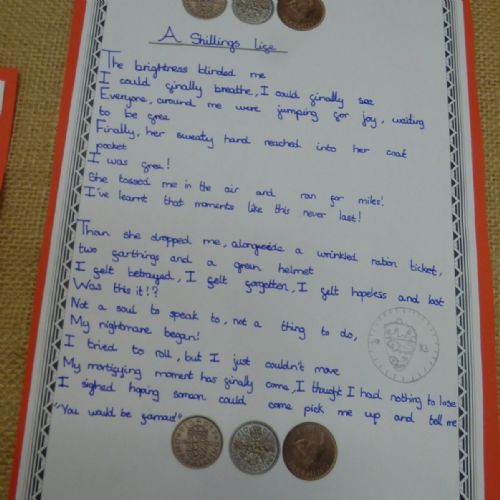 A Shillings life
The brightness blinded me
I could finally breathe, I could finally see
Everyone, around me were jumping for joy, waiting
to be free
Finally, her sweaty hand reached into her coat
pocket
I was free!
She tossed me in the air and ran for miles!
I've learnt that moments like this never last!
Than she dropped me, alongside a wrinkled ration ticket,
two farthings and a green helmet
I felt betrayed, I felt forgotten, I felt hopeless and lost
Was this it!?
Not a soul to speak to, not a thing to do,
My nightmare began!
I tried to roll, but I just couldn't move
My mortifying moment has finally come, I thought I had nothing to lose
I sighed hoping someon could come pick me up and tell me
"You would be famous"